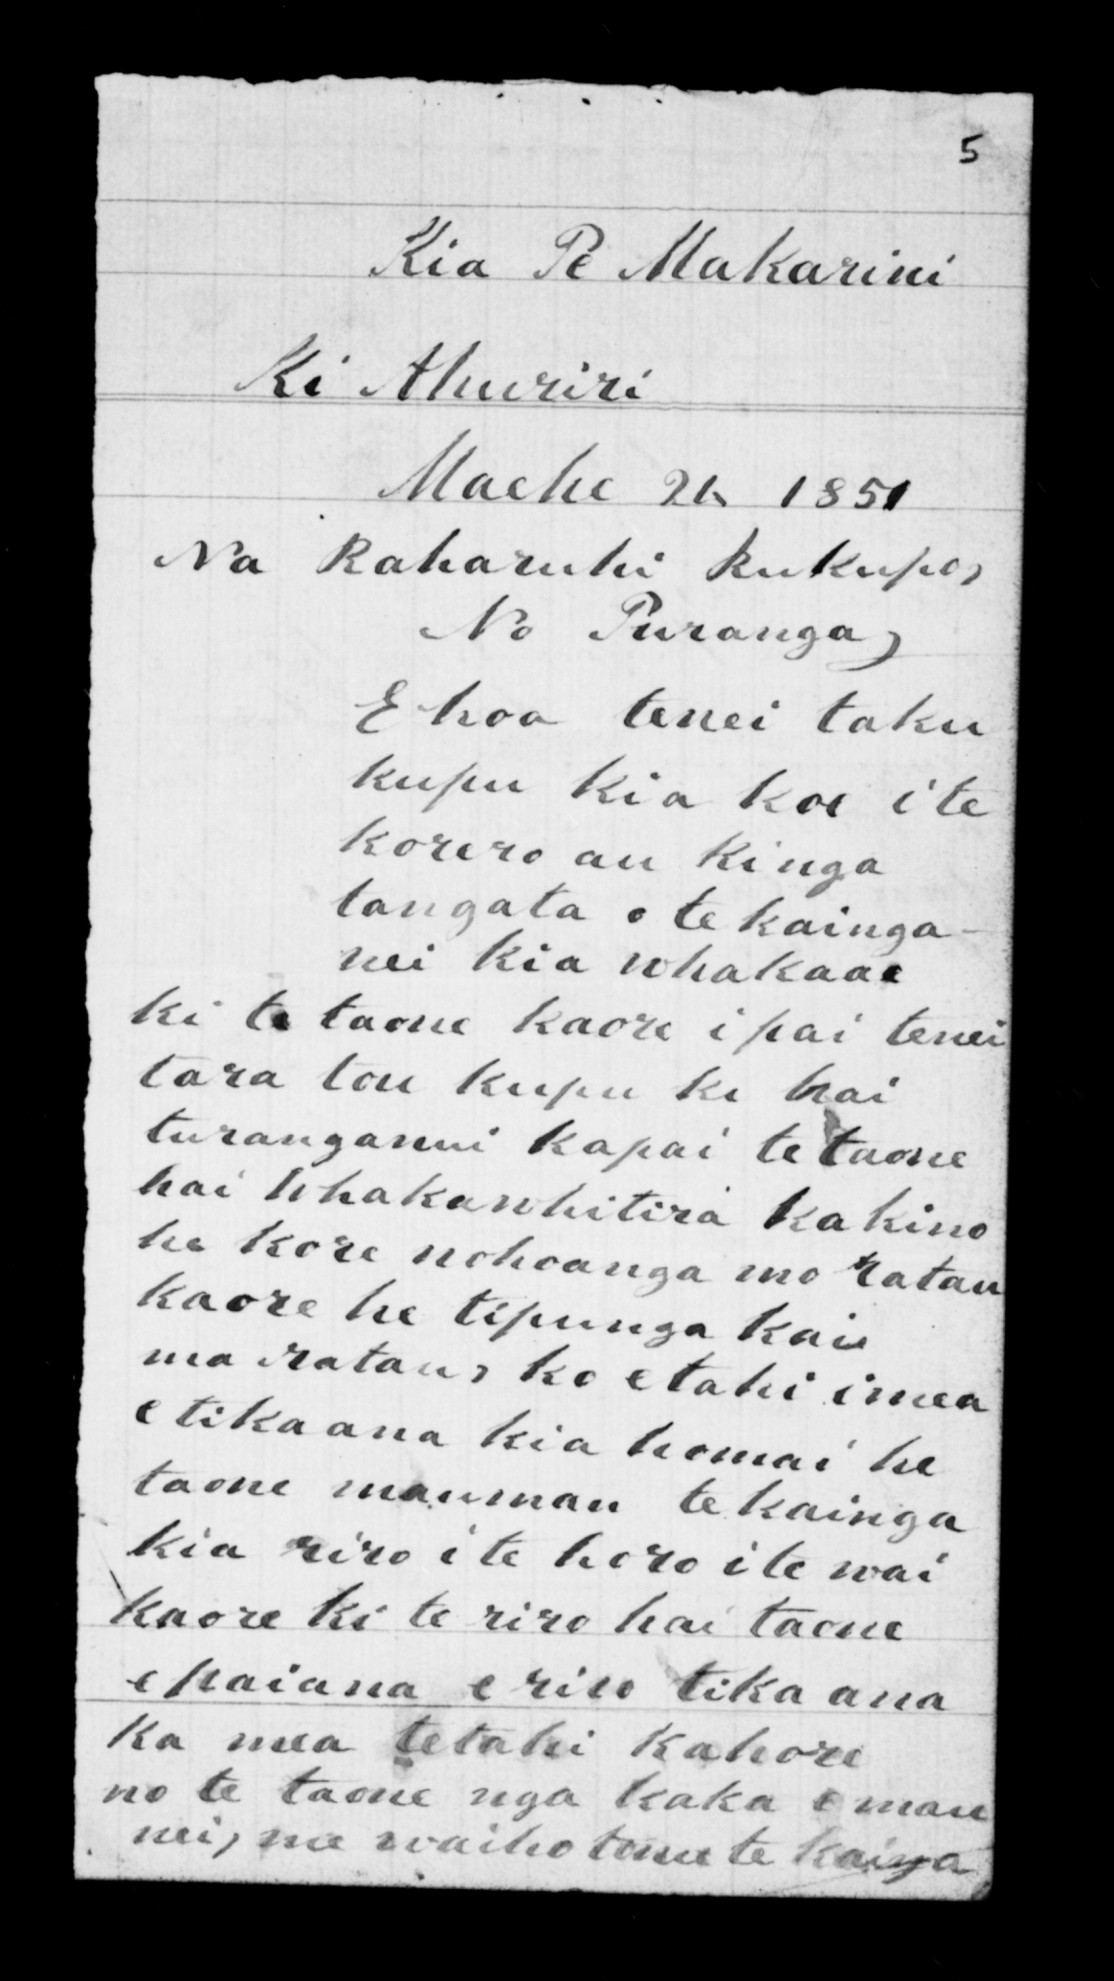 5
Kia Pe Makarini
Ki Ahuriri
Maehe 21 1851
Na Raharuhi Rukupo,
No Puranga,
E hoa tenei taku
kupu kia koe i te
korero au ki nga
tangata o te kainga
nei kia whakaae
ki te taone kaore i pai tenei
tara tou kupu ke hai
turanganui kapai te taone
hai Whakawhitira ka kino
he kore nohoanga mo ratau
kaore he tipunga kai
ma ratau, ko etahi i mea
e tika ana kia homai he
taone maumau te kainga
kia riro i te horo i te wai
kaore ki te riro hai taone
e paiana e riro tika ana
ka mea tetahi kahore
no te taone nga kaka e mau
nei, me waiho tonu te kainga